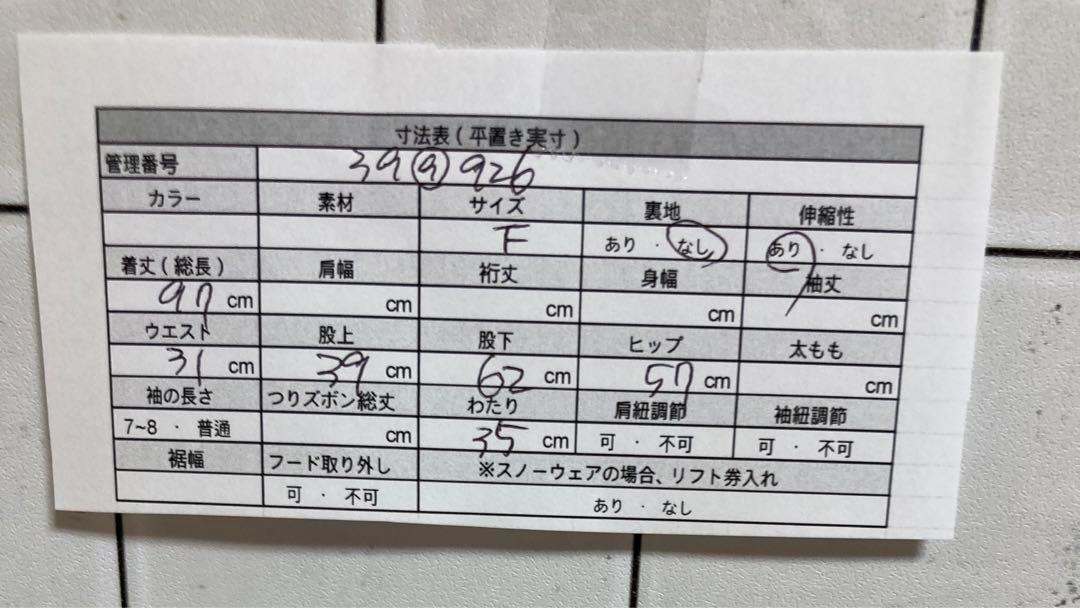 寸法表(平置き実寸)
管理番号 39ⓐ926
カラー 素材 サイズ 裏地 伸縮性
F あり・なし あり・なし
着丈(総長) 肩幅 裄丈 身幅 袖丈
97 cm cm cm cm cm
ウエスト 股上 股下 ヒップ 太もも
31 cm 39 cm 62 cm 57 cm cm
袖の長さ つりズボン総丈 わたり 肩紐調節 袖紐調節
7~8・普通 cm 35 cm 可・不可 可・不可
裾幅 フード取り外し ※スノーウェアの場合、リフト券入れ
可・不可 あり・なし